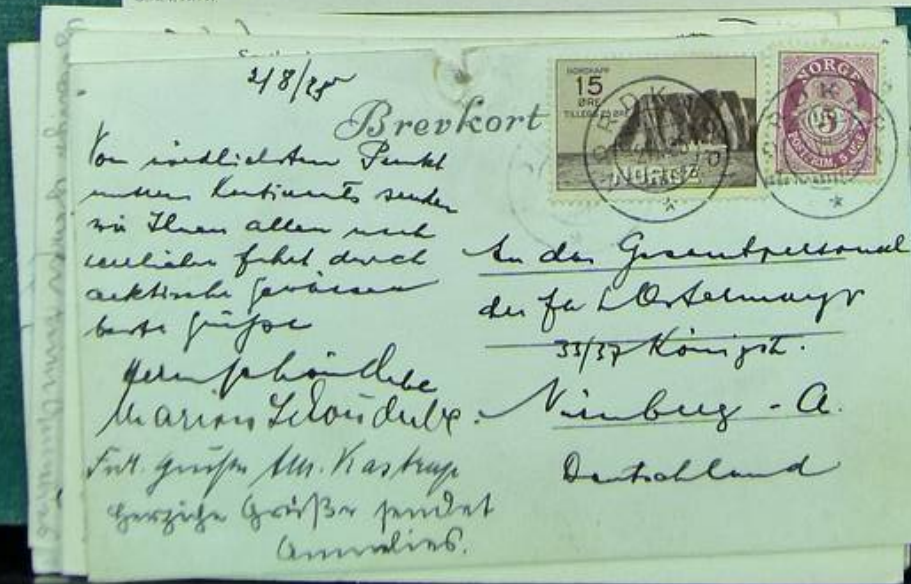 2/8/38
Brevkort
NORDKAPP
15
ØRE
NORGE
NORGE
5
POSTFRIM. 5 ØRE
Vom nördlichsten Punkt
unseres Kontinents senden
wir Ihnen allen nach
herrlicher Fahrt durch
arktische Gewässer
beste Grüße
Marion
Frdl. Grüße
Herzliche Grüße sendet
Annelies.
An das Gesamtpersonal
der Fa L Ostermayr
33/37 Königstr.
Nürnberg - A.
Deutschland